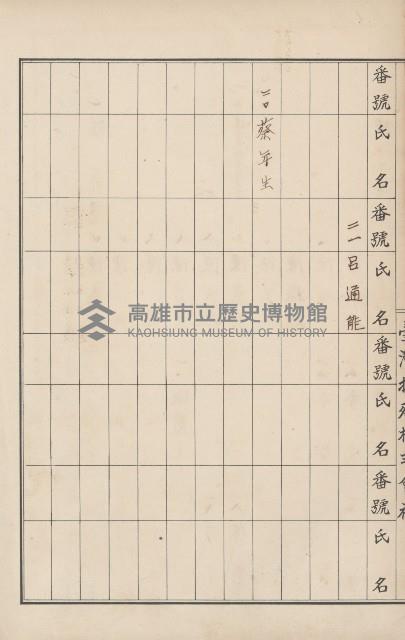 番號 氏名 番號 氏名 番號 氏名 番號 氏名
二一 呂通能
蔡年生
高雄市立歷史博物館
KAOHSIUNG MUSEUM OF HISTORY